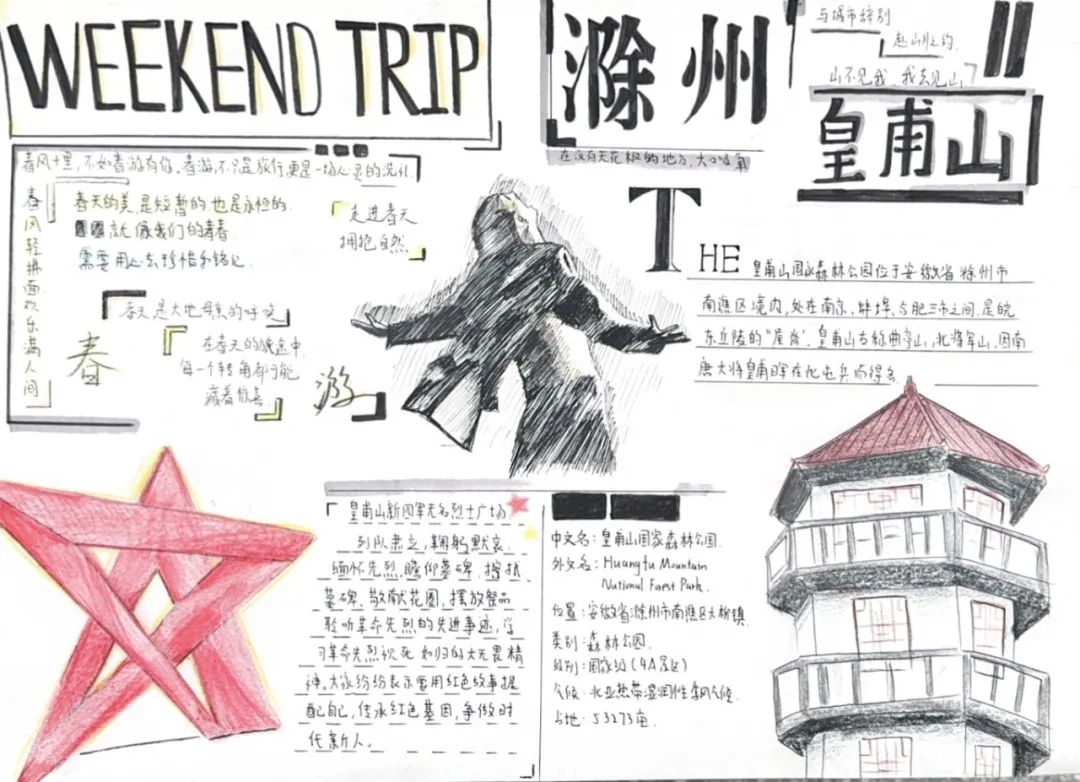 WEEKEND TRIP
滁州
与城市特别
赴山川之约
山不见我，我去见山
皇甫山
在没有天花板的地方，大口吸氧
春风十里，不如春游有你。春游，不只是旅行，更是一场心灵的洗礼
春风轻拂面欢乐满人间
春天的美，是短暂的也是永恒的
就像我们的青春
需要用心去珍惜和铭记
走进春天
拥抱自然
春天是大地母亲的呼唤
在春天的旅途中
每一个转角都可能
藏着惊喜
春游
THE 皇甫山国家森林公园位于安徽省滁州市
南谯区境内，处在南京，蚌埠，合肥三市之间，是皖
东丘陵的"屋脊"，皇甫山古称曲亭山，北将军山，因南
唐大将皇甫晖在此屯兵而得名
皇甫山新四军无名烈士广场
列队肃立，鞠躬默哀
缅怀先烈，瞻仰墓碑，擦拭
墓碑、敬献花圈，摆放餐品
聆听革命先烈的先进事迹，学
习革命先烈视死如归的大无畏精
神。大家纷纷表示要用红色故事提
醒自己，传承红色基因，争做时
代新人。
中文名：皇甫山国家森林公园
外文名：Huangfu Mountain
National Forest Park
位置：安徽省滁州市南谯区大柳镇
类别：森林公园
级别：国家级（4A景区）
气候：北亚热带湿润性季风气候
占地：53273亩